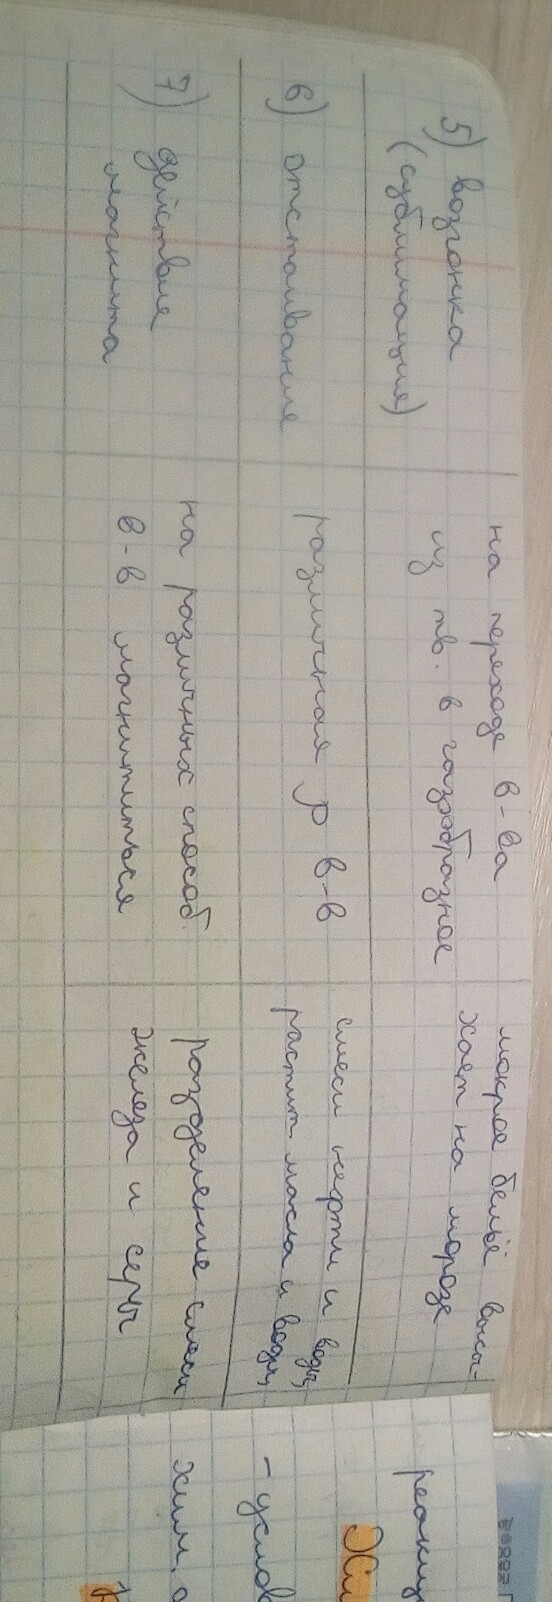 5) возгонка
(сублимация)
на переходе в-ва
из тв. в газообразное
мокрое бельё высы-
хает на морозе
6) отстаивание
различная ρ в-в
смеси нефти и воды,
растит масла и воды,
7) действие
магнита
на различных способ.
в-в магнититься
разделение смеси
железа и серы
реакц
- услов
хим.